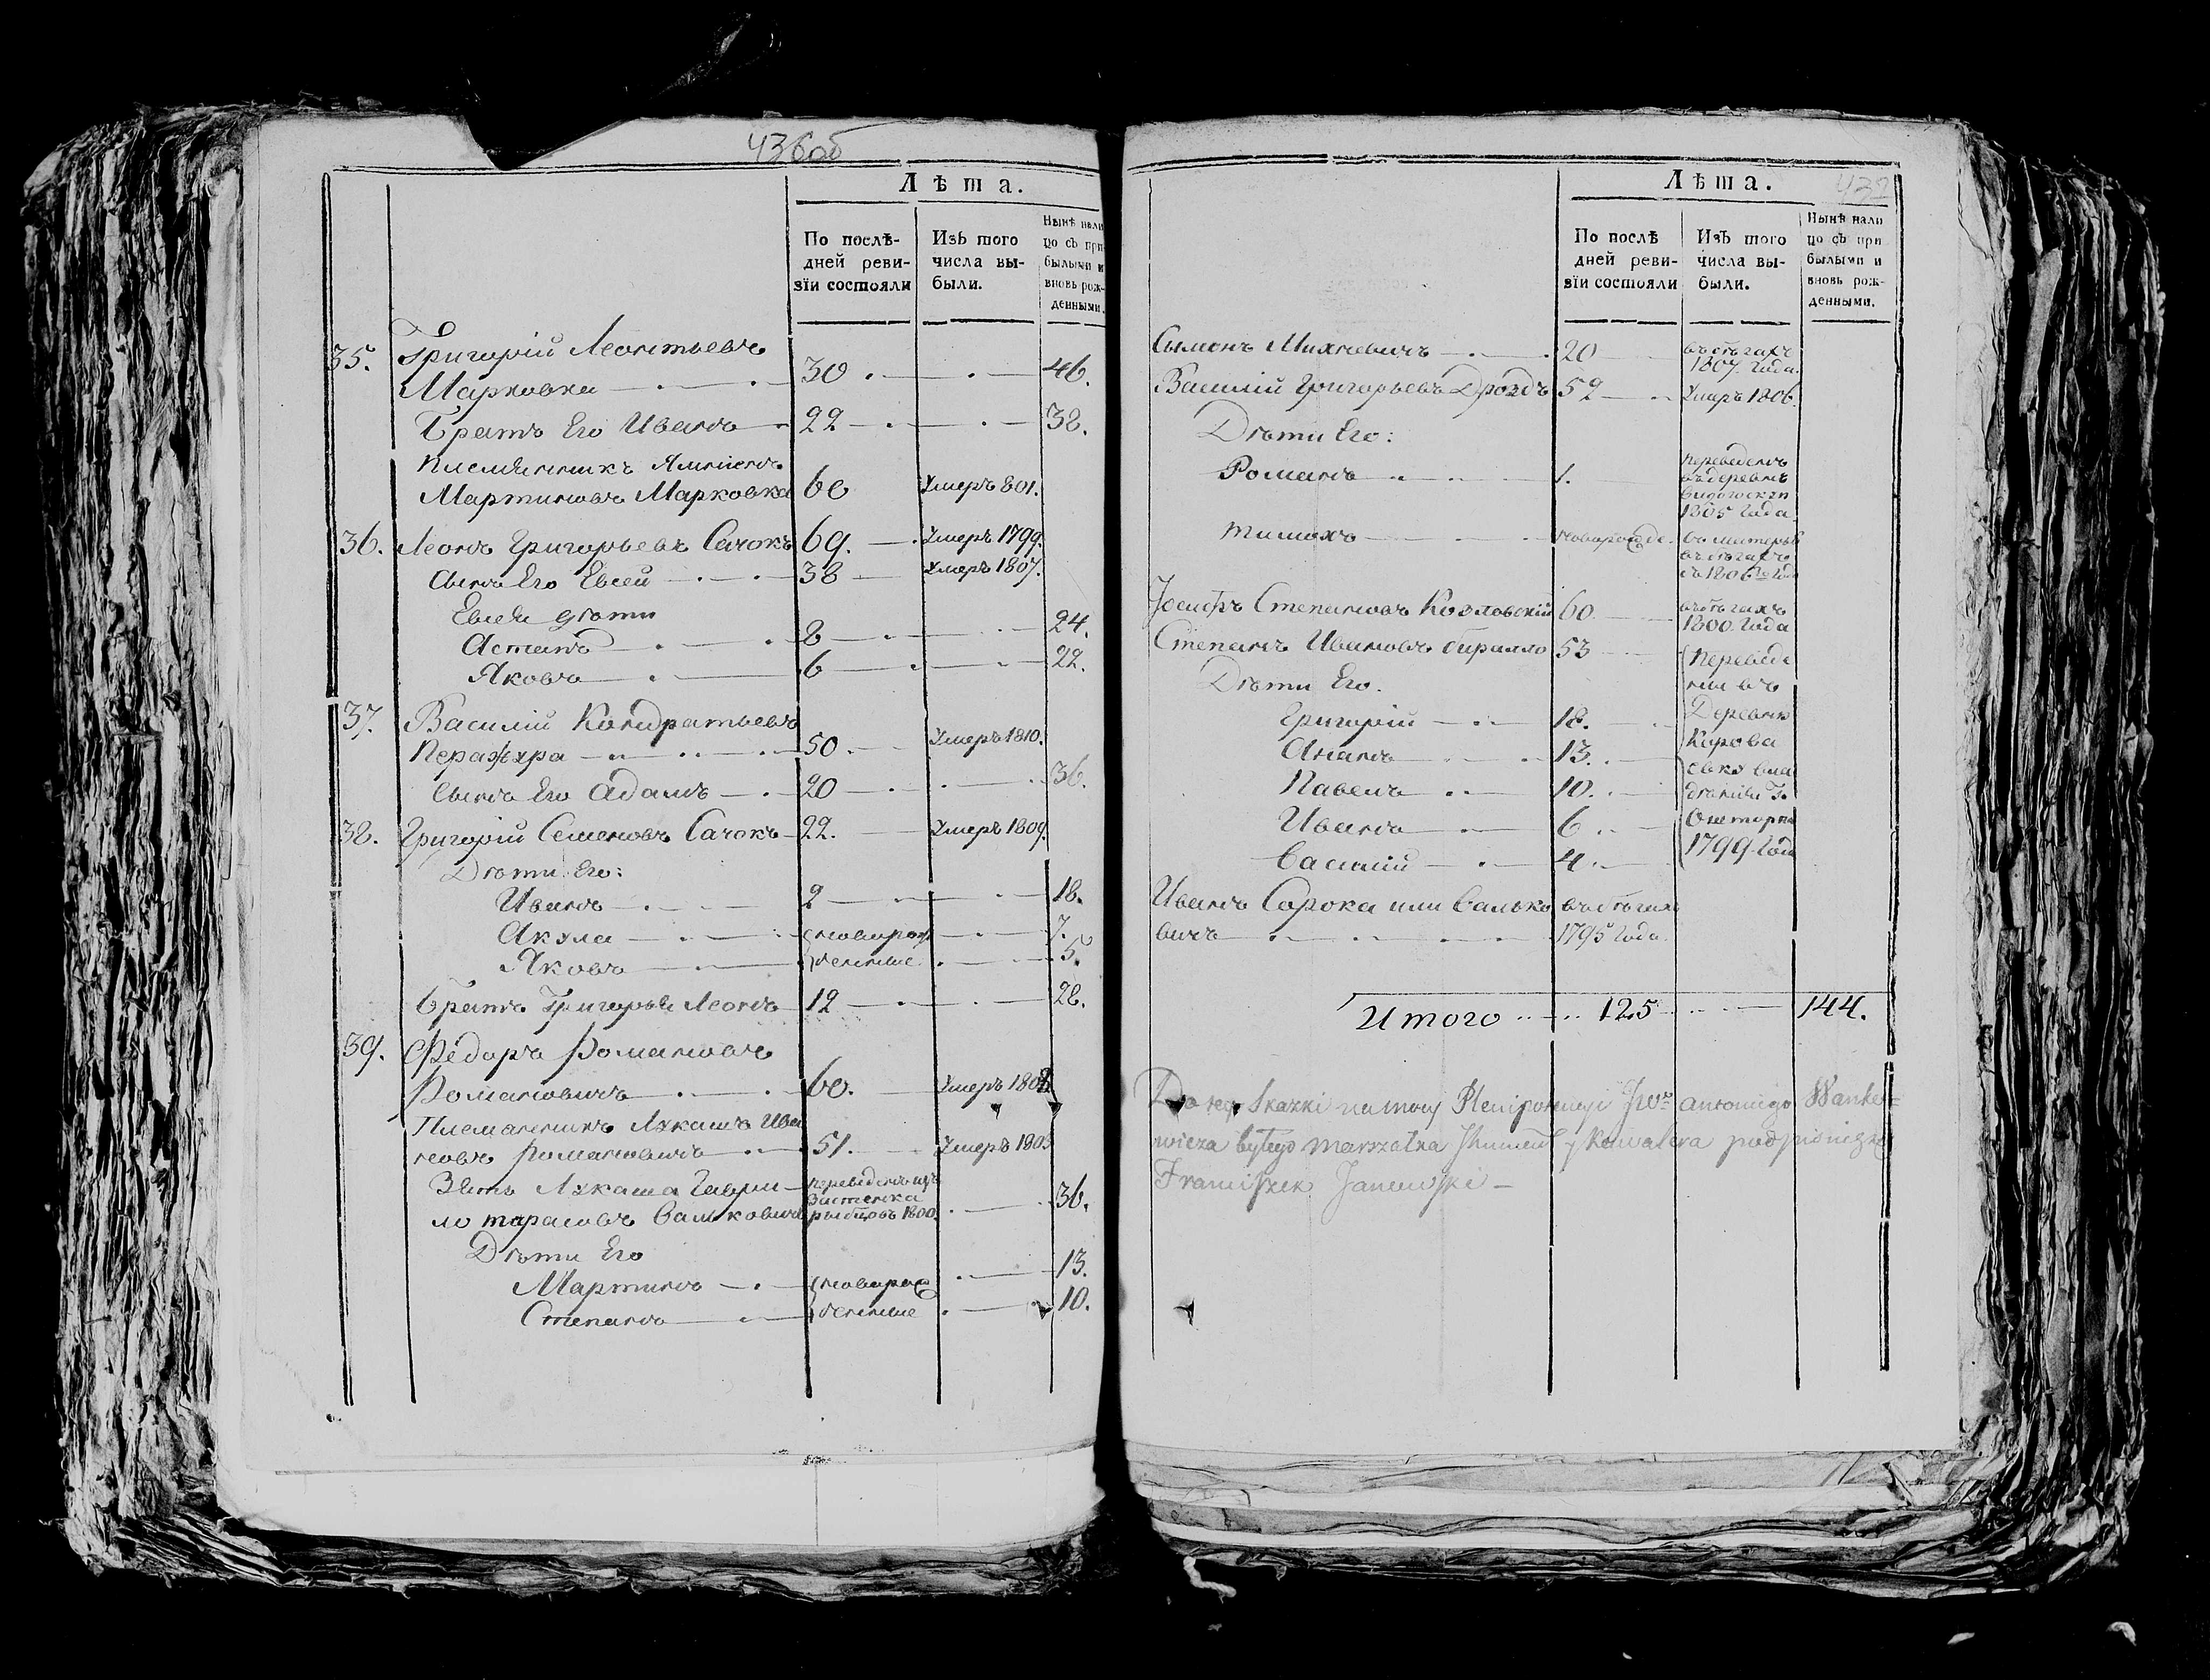 436об
Лѣта.
По послѣ-
дней реви-
зіи состояли
Изъ того
числа вы-
были.
Нынѣ нали
цо съ при-
былыми и
вновь рож-
денными.
35. Григорій Леонтьевъ
Марковка 30 46.
Братъ Его Иванъ 22 38.
Племянникъ
Мартиновъ Марковка 60 Умеръ 801.
36. Леонъ Григорьевъ Сачокъ 69. Умеръ 1799.
Сынъ Его Евсей 38 Умеръ 1807.
Евсея дѣти
Астапъ 8 24.
Яковъ 6 22.
37. Василій Кондратьевъ
50. Умеръ 1810.
Сынъ Его Адамъ 20 36.
38. Григорій Семеновъ Сачокъ 22. Умеръ 1809.
Дѣти Его:
Иванъ 2 18.
Акула новорож 7.
Яковъ денные 5.
Братъ Григорья Леонъ 12 28.
39. Фёдоръ Романовъ
Романовичъ 60. Умеръ 1802
Племянникъ Лукашъ Ива
новъ Романовичъ 51. Умеръ 1803
Зять Лукаша Гаври-
ло Тарасовъ Валковичъ переведенъ изъ
Застенка
рыбцовъ 1800. 36.
Дѣти Его
Мартинъ новорож 13.
Степанъ денные 10.
432
Лѣта.
По послѣ
дней реви-
зіи состояли
Изъ того
числа вы-
были.
Нынѣ нали
цо съ при
былыми и
вновь рож-
денными.
Сымонъ Михневичъ 20 въ бѣгахъ
1807. Года.
Василій Григорьевъ Дроздъ 52 Умеръ 1806.
Дѣти Его:
Романъ 1. переведенъ
въ деревнь
1805 Года.
Тимохъ новорожде. съ матерью
въ бѣгахъ
съ 1806 го Года
Іосифъ Степановъ Козловскій 60 въ бѣгахъ
1800. Года
Степанъ Ивановъ бирилло 53 переведе
Дѣти Его. ни въ
Григорій 18. Деревню
Ананъ 13. Кирова
Павелъ 10.
Иванъ 6
Василій 4. 1799 Года
Иванъ Сорока или Валько въ бѣгахъ
вичъ 1795 Года.
Итого 125 144.
Do tey Skazki na mocy Plenipotencyi JWo Antoniego Wanko-
wicza byłego Marszałka Jhumeń y Kawalera podpisuię
Franciszek Janowski